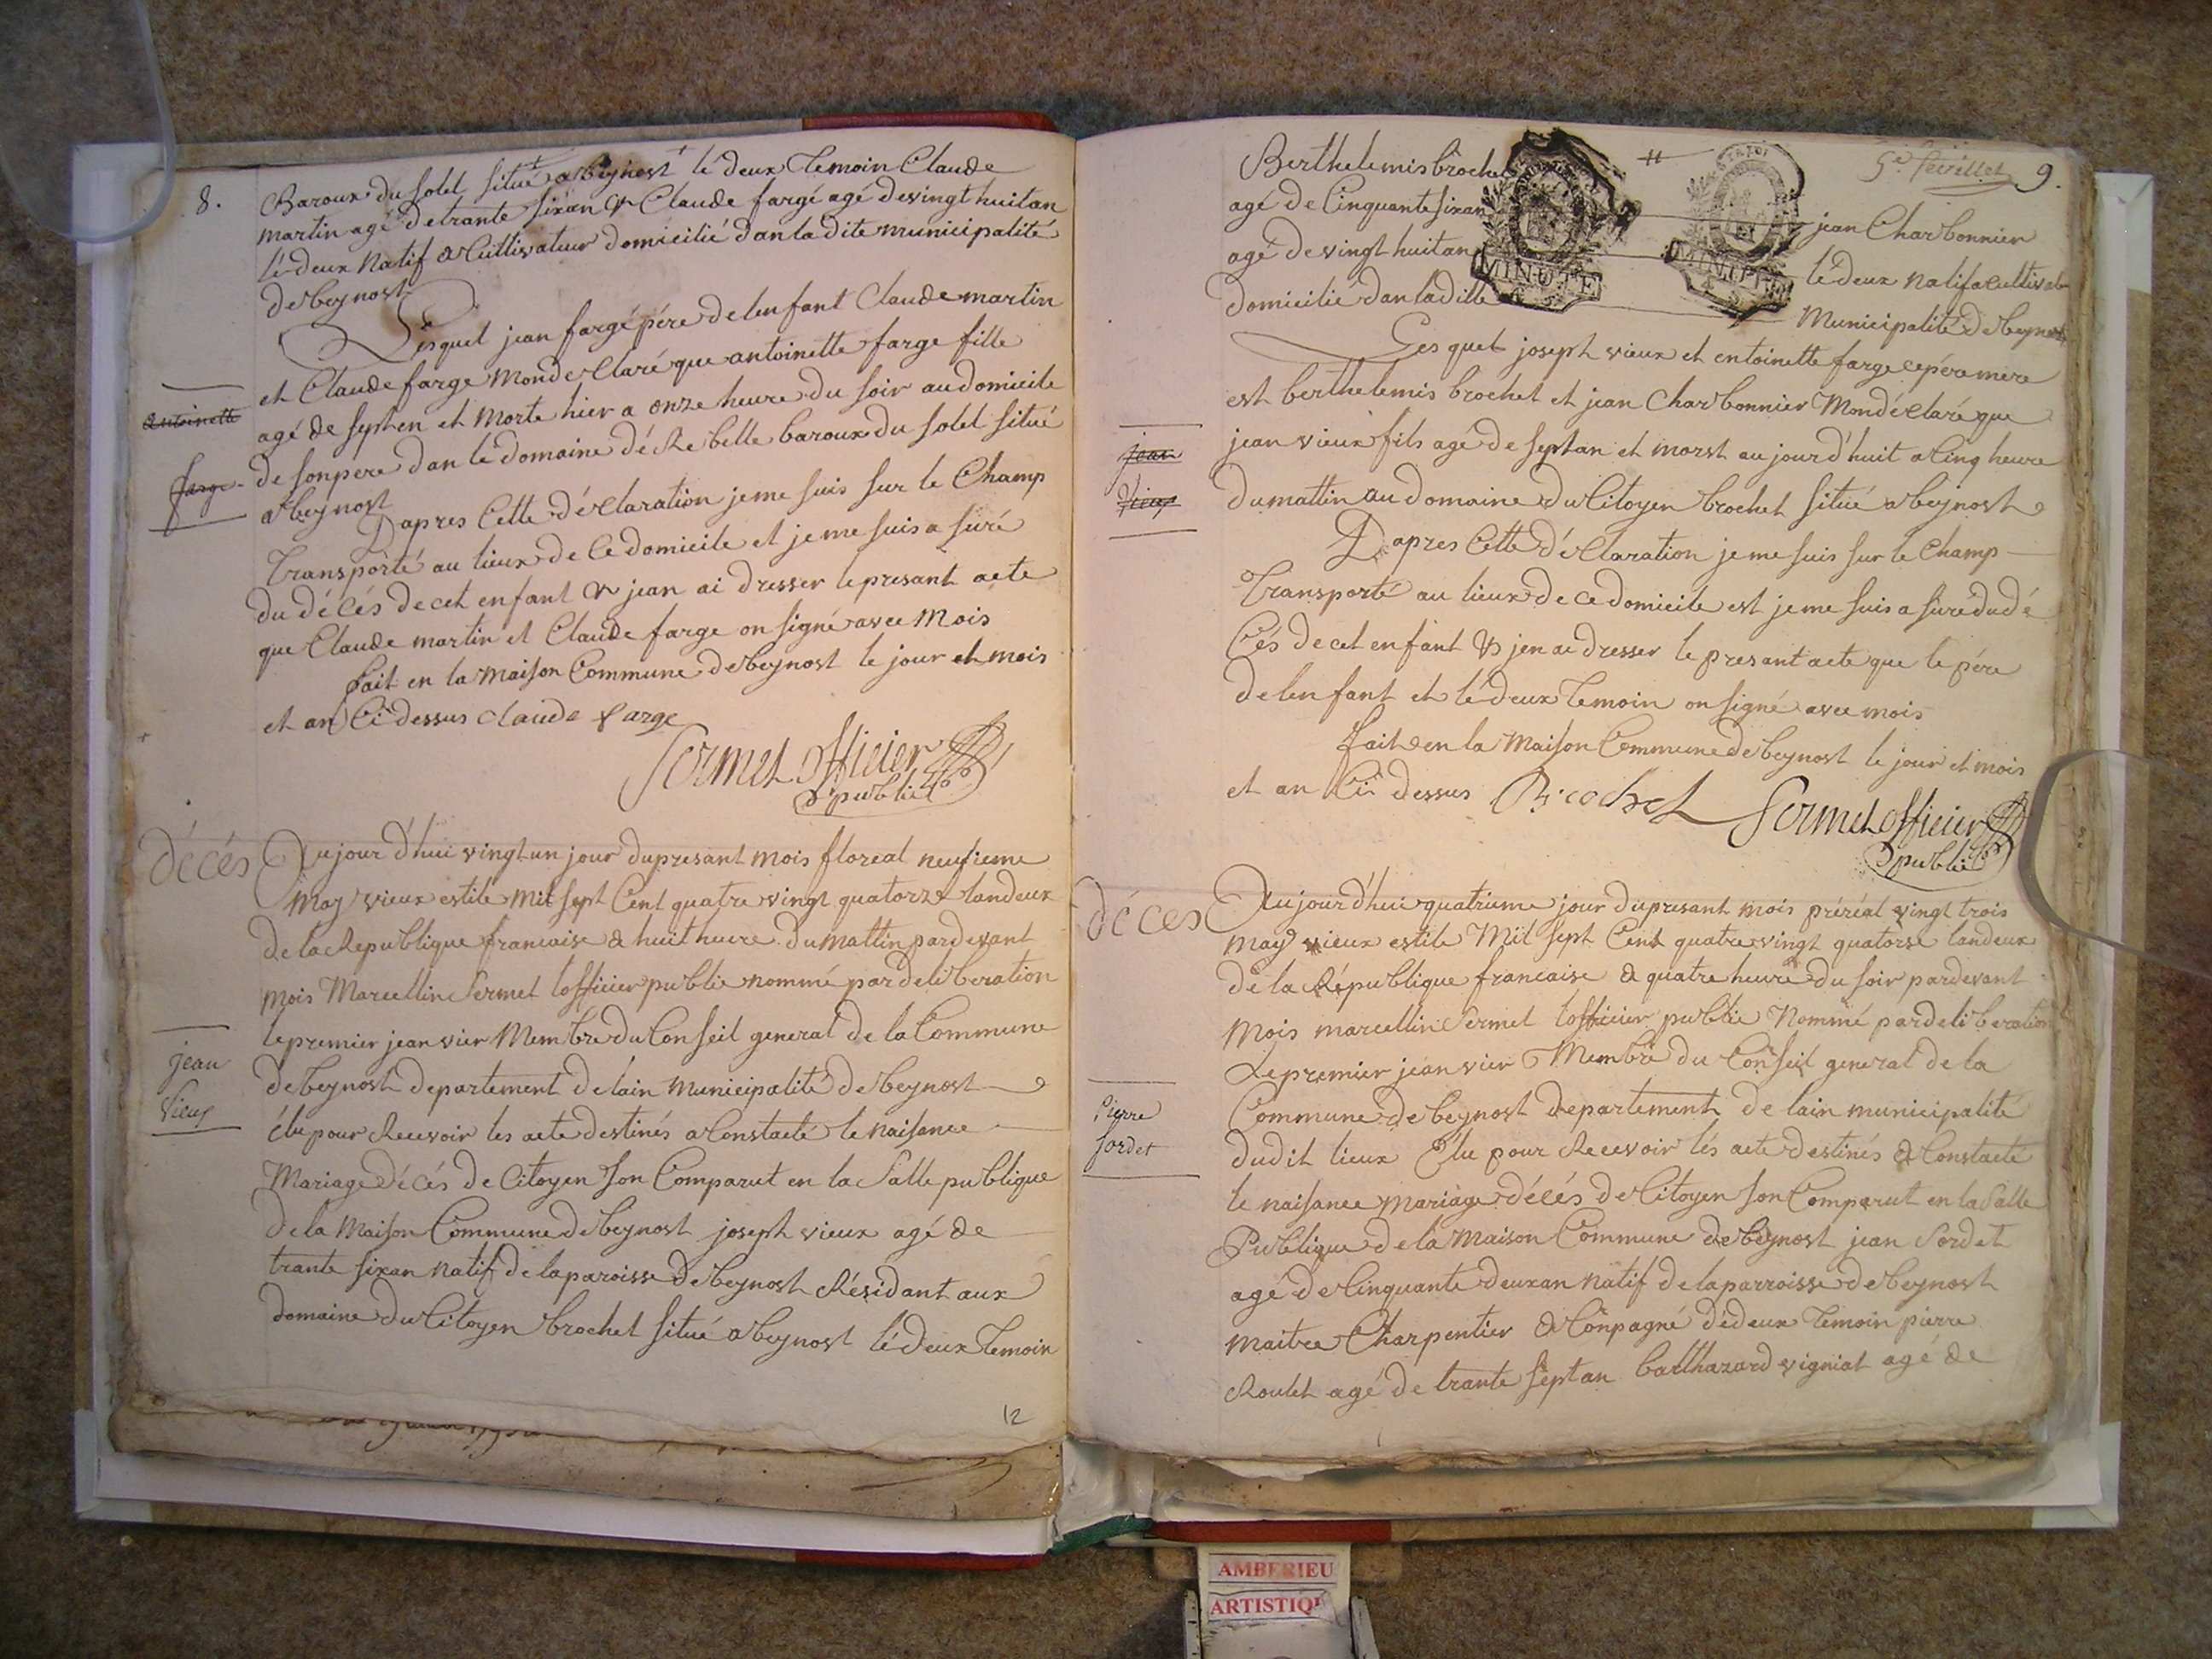 8.
Baroux du solel situé a beÿnost lé deux temoin Claude
martin agé de trante sixan & Claude fargé agé de vingt huit an
lé deux natif & Cultivateur domicilié dan la dite municipalité
de beynost
Lesquel jean fargé pére de lenfant Claude martin
et Claude farge mon declaré que antoinette farge fille
agé de septen et morte hier a onze heure du soir au domicile
de son pere dan lé domaine dé Rebelle baroux du solel situé
a beynost
antoinette
farge
D'apres Cette déclaration je me suis sur le Champ
transporté au lieux de Ce domicile et je me suis a suré
du décés de cet enfant & jean ai dresser le presant acte
que Claude martin et Claude farge on signé avec mois
fait en la maison Commune de beynost le jour et mois
et an Ci dessus claude farge
Sermet officier
public
décés
Aujour d'hui vingt un jour du presant mois floreal neufieme
may vieux estile mil sept Cent quatre vingt quatorze landeux
de la Republique francaise a huit heure du mattin pardevant
mois Marcellin Sermet lofficier public nommé par deliberation
le premier jeanvier Membre du Conseil general de la Commune
de beynost departement de lain municipalité de beynost
élu pour Recevoir les acte destinés a Constacté le naisance
Mariage décés de Citoyen son Comparut en la Salle publique
de la maison Commune de beynost joseph vieux agé de
trante sixan natif de la paroisse de beynost Résidant aux
domaine du Citoyen brochet situé a beynost lé deux temoin
jean
Vieux
12
5e feuillet 9.
Berthelemis brochet
agé de Cinquante sixan jean Charbonnier
agé de vingt huit an lé deux natif & cultivateur
domicilié dan la ditte Municipalité de beynost
MINUTE
Les quel joseph vieux et entoinette farge ce pére mere
est berthelemis brochet et jean Charbonnier mon déclaré que
jean vieux fils agé de septan et morst aujour d'huit a Cinq heure
du mattin au domaine du Citoyen brochet situé a beynost
jean
Vieux
D'apres Cette déclaration je me suis sur le Champ
transporté au lieux de ce domicile est je me suis a suré du dé
Cés de cet enfant & jen ai dresser le presant acte que le pére
de lenfant et lé deux temoin on signé avec mois
fait en la maison Commune de beynost le jour et mois
et an Ci dessus Brochet Sermet officier
public
décés
Aujourd'hui quatrieme jour du presant mois préréal vingt trois
may vieux estile Mil sept Cent quatre vingt quatorse landeux
de la République francaise a quatre heure du soir pardevant
mois marcellin Sermet lofficier public Nommé par deliberation
Le premier jeanvier Membre du Conseil general de la
Commune de beynost departement de lain municipalité
dudit lieux Elu pour Recevoir lés acte destinés a Constacté
le naisance mariage décés de Citoyen son Comparut en la Salle
Publique de la maison Commune de beynost jean Sordet
agé de Cinquante deuxan natif de la parroisse de beynost
maitre Charpentier a Conpagné dé deux temoin pierre
Roulet agé de trante septan balthazard vigniat agé de
Pierre
Sordet
AMBERIEU
ARTISTIQU